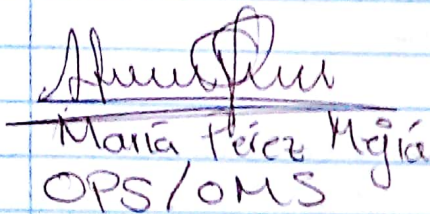 María Pérez Mejía
OPS/OMS